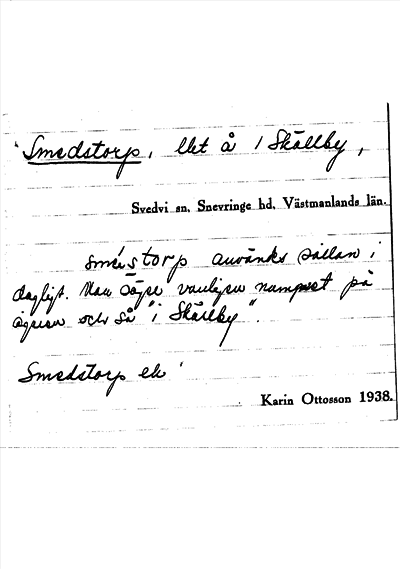 Smedstorp, llet å 1 Skällby,
Svedvi sn, Snevringe hd, Västmanlands län.
smés torp användes sällan i
dagligt. Man säger vanligen namnet på
ägaren och så "i Skällby".
Smedstorp ek
Karin Ottosson 1938.